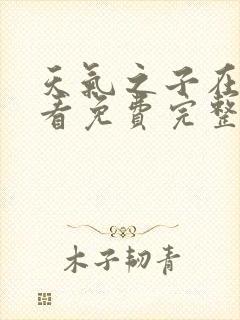 天氣之子在
看免費完整
木子韧青